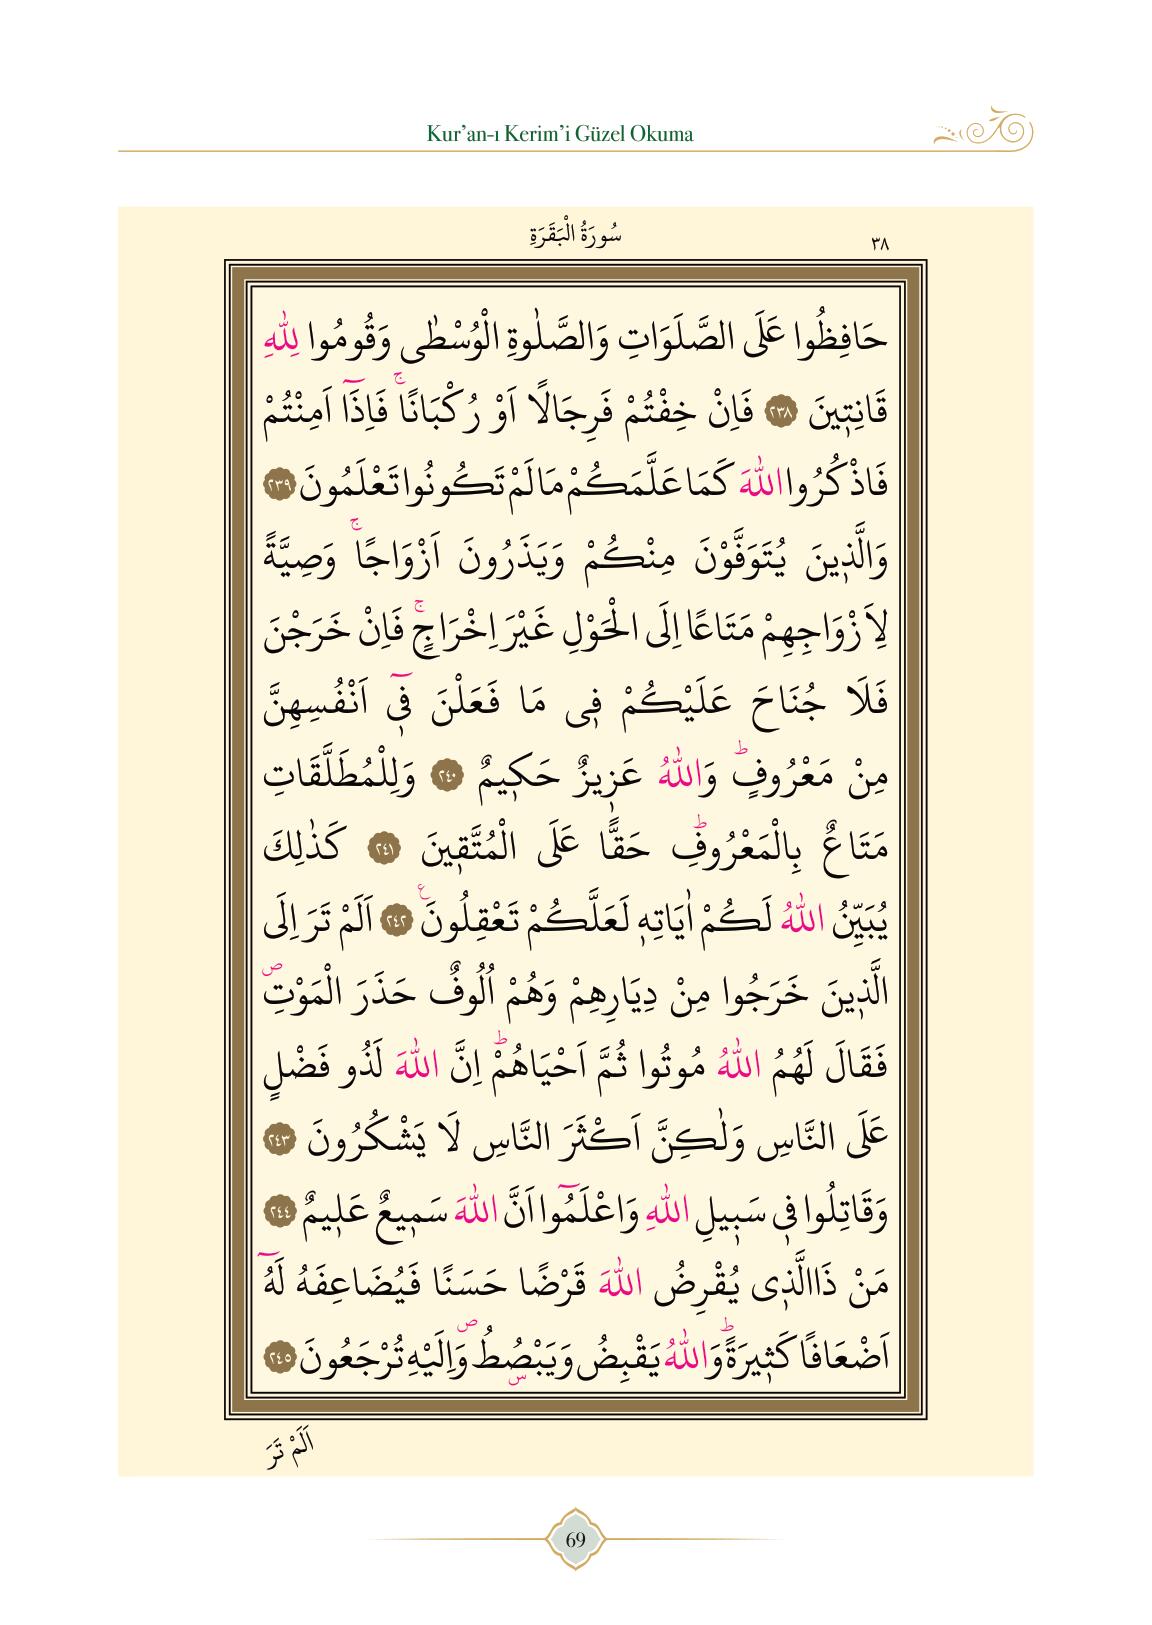 Kur’an-ı Kerim’i Güzel Okuma
٣٨
سُورَةُ الْبَقَرَةِ
حَافِظُوا عَلَى الصَّلَوَاتِ وَالصَّلٰوةِ الْوُسْطٰى وَقُومُوا لِلّٰهِ
قَانِت۪ينَ ﴿٢٣٨﴾ فَاِنْ خِفْتُمْ فَرِجَالًا اَوْ رُكْبَانًاۚ فَاِذَٓا اَمِنْتُمْ
فَاذْكُرُوا اللّٰهَ كَمَا عَلَّمَكُمْ مَا لَمْ تَكُونُوا تَعْلَمُونَ ﴿٢٣٩﴾
وَالَّذ۪ينَ يُتَوَفَّوْنَ مِنْكُمْ وَيَذَرُونَ اَزْوَاجًاۚ وَصِيَّةً
لِاَزْوَاجِهِمْ مَتَاعًا اِلَى الْحَوْلِ غَيْرَ اِخْرَاجٍۚ فَاِنْ خَرَجْنَ
فَلَا جُنَاحَ عَلَيْكُمْ ف۪ى مَا فَعَلْنَ ف۪ٓى اَنْفُسِهِنَّ
مِنْ مَعْرُوفٍۜ وَاللّٰهُ عَز۪يزٌ حَك۪يمٌ ﴿٢٤٠﴾ وَلِلْمُطَلَّقَاتِ
مَتَاعٌ بِالْمَعْرُوفِۜ حَقًّا عَلَى الْمُتَّق۪ينَ ﴿٢٤١﴾ كَذٰلِكَ
يُبَيِّنُ اللّٰهُ لَكُمْ اٰيَاتِه۪ لَعَلَّكُمْ تَعْقِلُونَ ع ﴿٢٤٢﴾ اَلَمْ تَرَ اِلَى
الَّذ۪ينَ خَرَجُوا مِنْ دِيَارِهِمْ وَهُمْ اُلُوفٌ حَذَرَ الْمَوْتِ ص
فَقَالَ لَهُمُ اللّٰهُ مُوتُوا ثُمَّ اَحْيَاهُمْۜ اِنَّ اللّٰهَ لَذُو فَضْلٍ
عَلَى النَّاسِ وَلٰكِنَّ اَكْثَرَ النَّاسِ لَا يَشْكُرُونَ ﴿٢٤٣﴾
وَقَاتِلُوا ف۪ى سَب۪يلِ اللّٰهِ وَاعْلَمُٓوا اَنَّ اللّٰهَ سَم۪يعٌ عَل۪يمٌ ﴿٢٤٤﴾
مَنْ ذَا الَّذ۪ى يُقْرِضُ اللّٰهَ قَرْضًا حَسَنًا فَيُضَاعِفَهُ لَهُٓ
اَضْعَافًا كَث۪يرَةًۜ وَاللّٰهُ يَقْبِضُ وَيَبْصُۣطُ ص وَاِلَيْهِ تُرْجَعُونَ ﴿٢٤٥﴾
اَلَمْ تَرَ
69